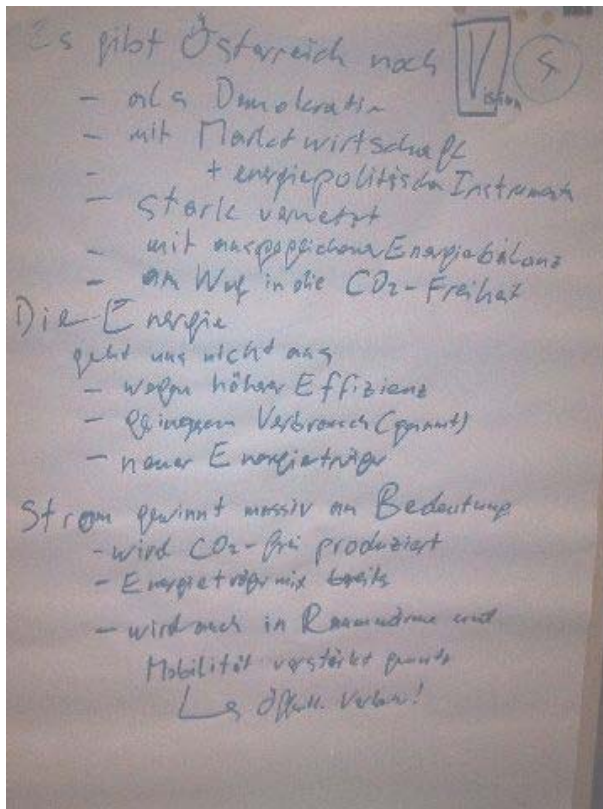 Es gibt Österreich noch Vision
- als Demokratie
- mit Marktwirtschaft
- + energiepolitische Instrumente
- stark vernetzt
- mit ausgeglichener Energiebilanz
- am Weg in die CO2-Freiheit
Die Energie
geht uns nicht aus
- wegen höherer Effizienz
- geringerem Verbrauch (gesamt)
- neuer Energieträger
Strom gewinnt massiv an Bedeutung
- wird CO2-frei produziert
- Energieträgermix
- wird auch in Raumwärme und
Mobilität verstärkt genutzt
öffentl. Verkehr!